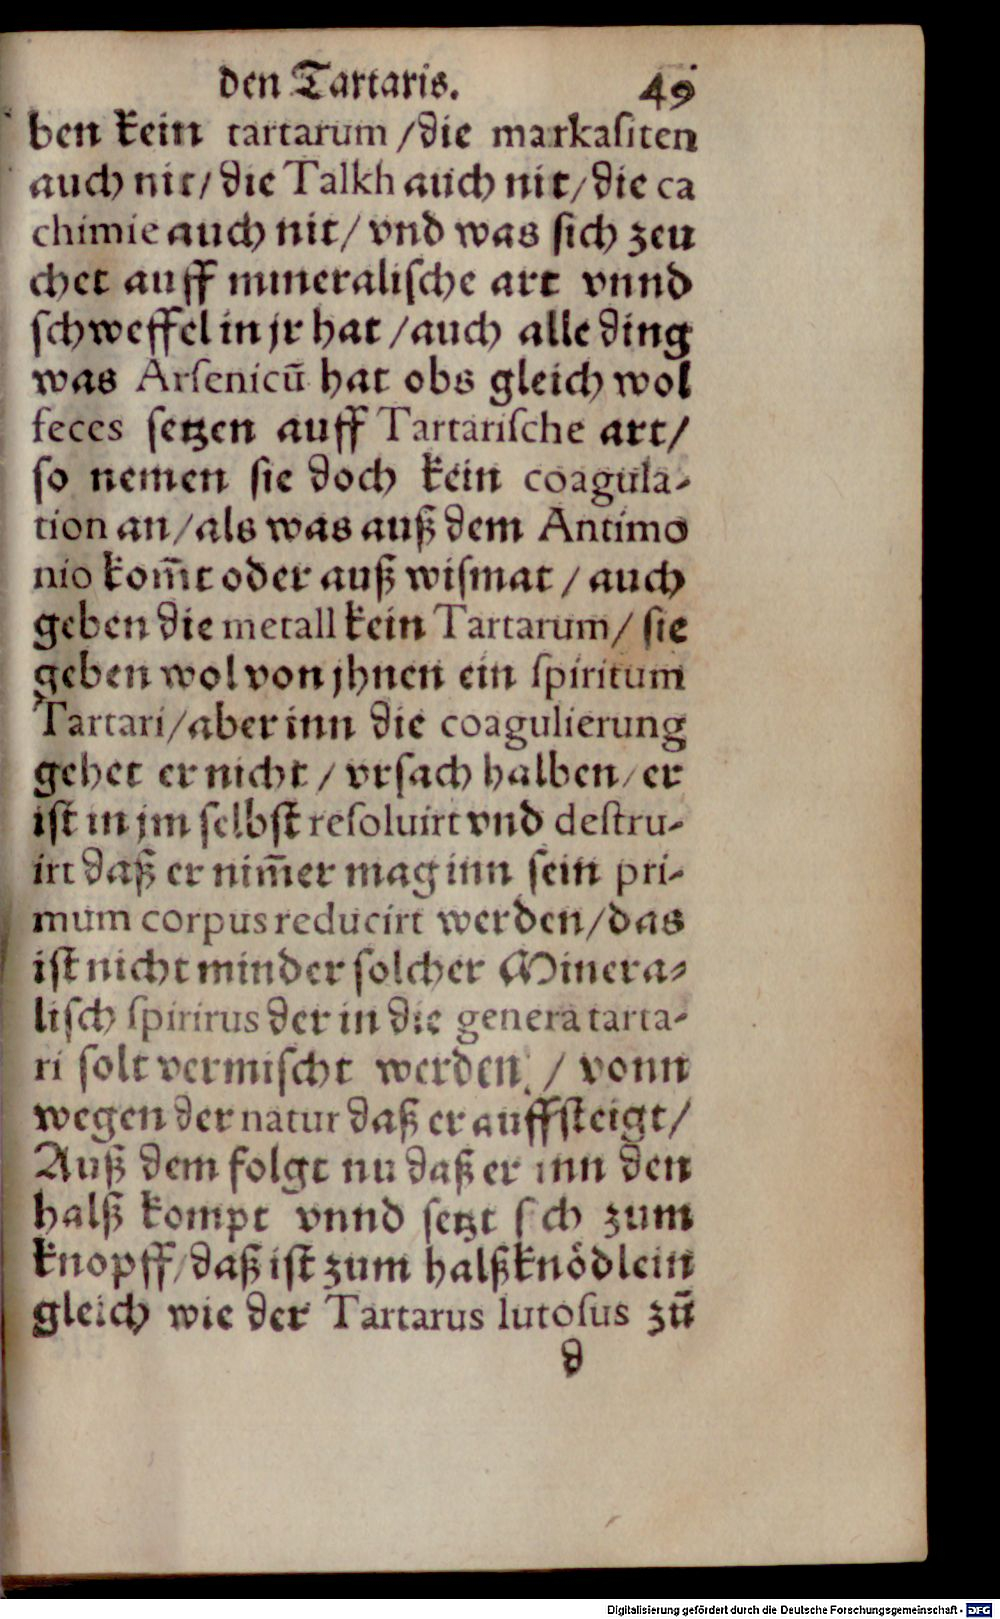 den Tartaris. 49
ben kein tartarum /die markaſiten
auch nit/ die Talkh auch nit/ die ca
chimie auch nit/ vnd was ſich zeu
chet auff mineraliſche art vnnd
ſchweffel in jr hat /auch alle ding
was Arſenicū hat obs gleich wol
feces ſetzen auff Tartariſche art/
ſo nemen ſie doch kein coagula-
tion an/als was auß dem Antimo
nio kom̄t oder auß wiſmat / auch
geben die metall kein Tartarum/ ſie
geben wol von jhnen ein ſpiritum
Tartari/aber inn die coagulierung
gehet er nicht / vrſach halben/ er
iſt in jm ſelbſt reſoluirt vnd deſtru-
irt daß er nim̄er mag inn ſein pri-
mum corpus reducirt werden/das
iſt nicht minder ſolcher Minera-
liſch ſpirirus der in die genera tarta-
ri ſolt vermiſcht werden / vonn
wegen der natur daß er auffſteigt/
Auß dem folgt nu daß er inn den
halß kompt vnnd ſetzt ſich zum
knopff/daß iſt zum halßknödlein
gleich wie der Tartarus lutoſus zū
d
Digitalisierung gefördert durch die Deutsche Forschungsgemeinschaft - DFG